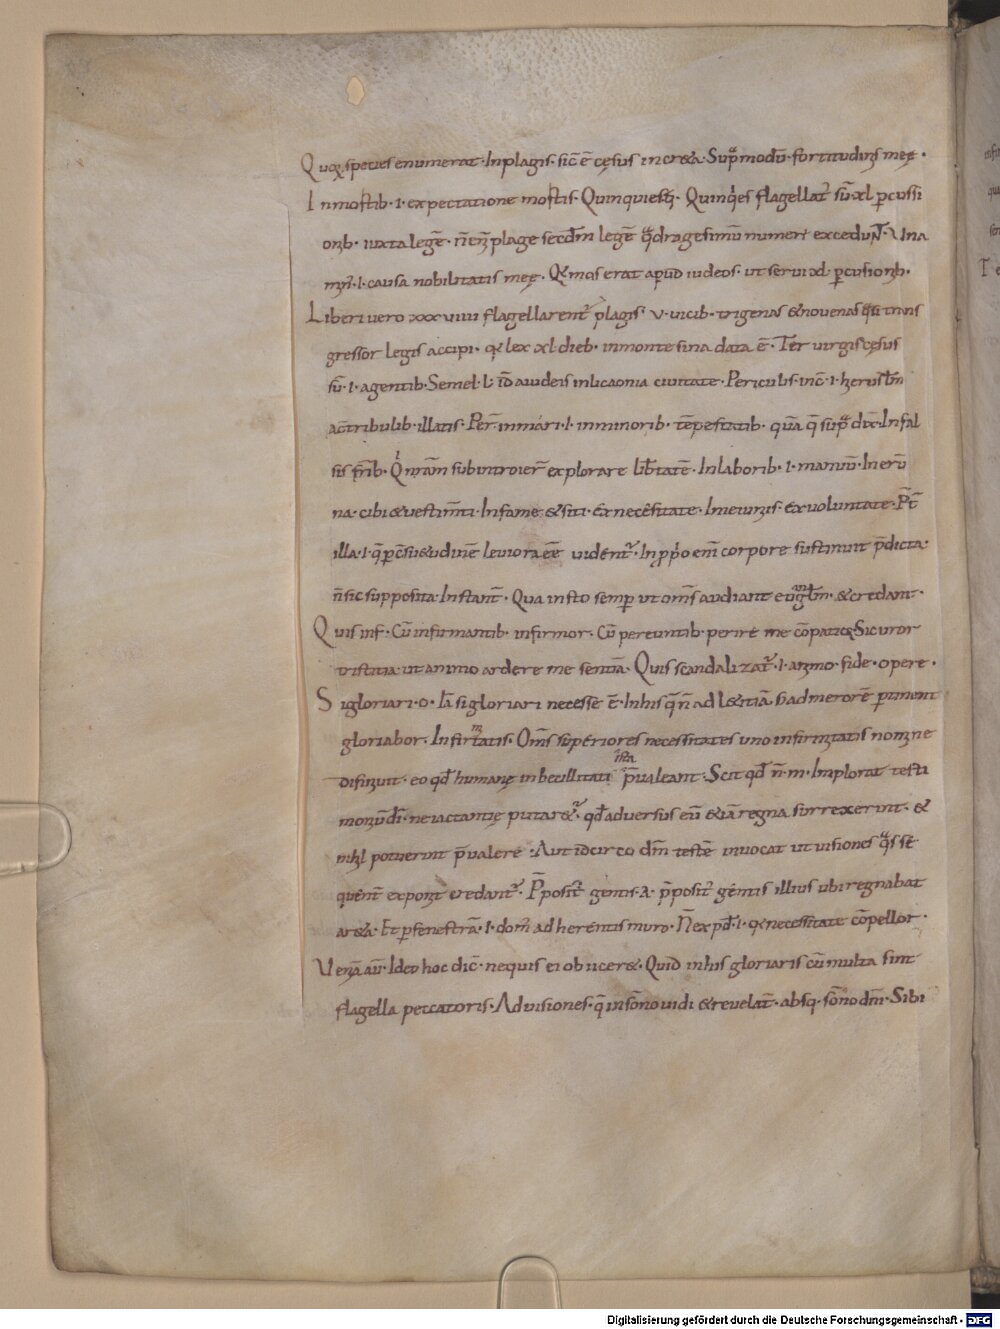 Quoꝝ species enumerat · In plagis · sic̄ ē cęsus in creta · Sup̄ modū · fortitudinis meę ·
In mortib · i · expectatione mortis · Quinquies · Quinq̇es flagellat᷑ sū · xl p̱cussi
onib · iuxta legē · n̄ plagę secd̄m legē q̊dragesimū numerū excedunt̄ · Una
min̄ · i · causa nobilitatis meę · Qꝫ mos erat apud iudeos · ut serui xl p̱cusionib ·
Liberi uero xxxuiiii flagellarent᷑ plagis · v · uicib · trigenas & nouenas q̊si trans
gressor legis accipi · qꝫ lex xl dieb · in monte sina data ē · Ter uirgis cęsus
sū · i · a gentib · Semel l · id̄ a iudeis in licaonia ciuitate · Periculis · inc̄ · i · hierusl̄m
ac̄ tribulib · illatis · Per̄ · in mari · i · in minorib · tēpestatib · quā q̄ sup̊ dix̄ · In fal
sis fr̄ib · Q̇ uiam subintroier̄ explorare lib̄tatē · In laborib · i · manuū · In erū
na · cibi & uestim̄ti · In fame & siti · Ex necēsitate · In ieiuniis · ex uoluntate · P̄t
illa · i · q̄ p̱ cēsu & ordinē leuiora eē uident᷑ · In pp̊o em̄ corpore sustinuit p̄dicta ·
n̄ sic supposita · Instant̄ · Qua insto semp̱ ut om̄s audiant eu̅gl̄m · & credant ·
Quis inf · Cū infirmantib · infirmor · Cū pereuntib · perire me cōpatior · Sic uror
tristitia ut animo ardere me sentiā · Quis scandalizat᷑ · i · animo · fide · opere ·
Si gloriari · o · Iā si gloriari necesse ē · In his q̄ n̄ ad lętitiā · s; ad merorē p̱tinent
gloriabor · Infirmitatis · Om̄s superiores necessitates uno infirmitatis nomine
difiniuit · eo qd̄ humanę inbecillitati ista p̄ualeant · Scit qd̄ n̄ · m · Implorat testi
moniū dī · ne iactantię putaret᷑ · qd̄ aduersus eū & iā regna surrexerint · &
nihil potuerint p̄ualere · Aut idcirco dm̄ testē inuocat ut uisiones q̊s sē
quent̄ exponit credant᷑ · P̄posit᷑ gentis · a · p̄posit᷑ gentis illius ubi regnabat
areta · Et p̱ fenestrā · i · dom᷑ adherentis muro · N̄ expd̄ · i · qꝫ necessitate cōpellor ·
Veniā au̅ · Ideo hoc dic̄ · nequis ei obiiceret · Quid in his gloriaris cū multa sint
flagella peccatoris · Ad uisiones · q̄ in sōno uidi & reuelat̄ · absq · sōno dm̄ · Sibi
Digitalisierung gefördert durch die Deutsche Forschungsgemeinschaft - DFG